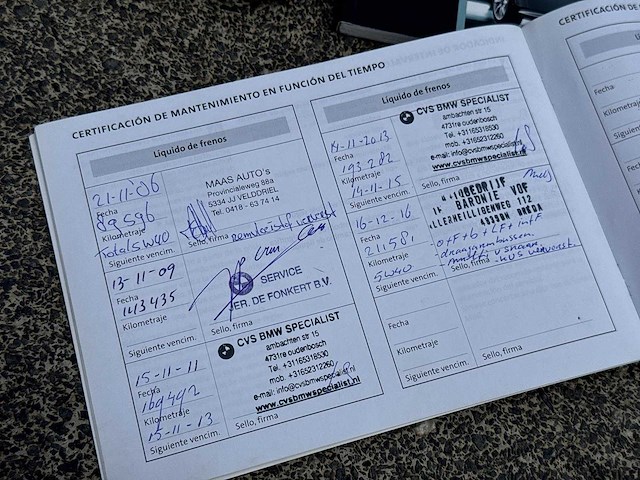 CERTIFICACIÓN DE MANTENIMIENTO EN FUNCIÓN DEL TIEMPO
Líquido de frenos
21-11-06
Fecha
Kilometraje
Siguiente vencim.
MAAS AUTO's
Provincialeweg 88a
5334 JJ VELDDRIEL
Tel. 0418 - 63 74 14
Sello, firma
remvloeistof ververst
13-11-09
Fecha
143435
Kilometraje
Siguiente vencim.
SERVICE
DE FONKERT B.V.
Sello, firma
15-11-11
Fecha
169492
Kilometraje
15-11-13
Siguiente vencim.
CVS BMW SPECIALIST
ambachten str 15
4731re oudenbosch
Tel. +31165318530
mob. +31652312260
e-mail: info@cvsbmwspecialist.nl
www.cvsbmwspecialist.nl
Sello, firma
Líquido de frenos
14-11-2013
Fecha
193282
Kilometraje
14-11-15
Siguiente vencim.
CVS BMW SPECIALIST
ambachten str 15
4731re oudenbosch
Tel. +31165318530
mob. +31652312260
e-mail: info@cvsbmwspecialist.nl
www.cvsbmwspecialist.nl
Sello, firma
16-12-16
Fecha
211581
Kilometraje
5W40
Siguiente vencim.
BARONIE VOF
ALLERHEILIGENWEG 112
BREDA
Sello, firma
Fecha
Kilometraje
Siguiente vencim.
Sello, firma
CERTIFICACIÓN DE
Fecha
Kilometraje
Siguiente
Fecha